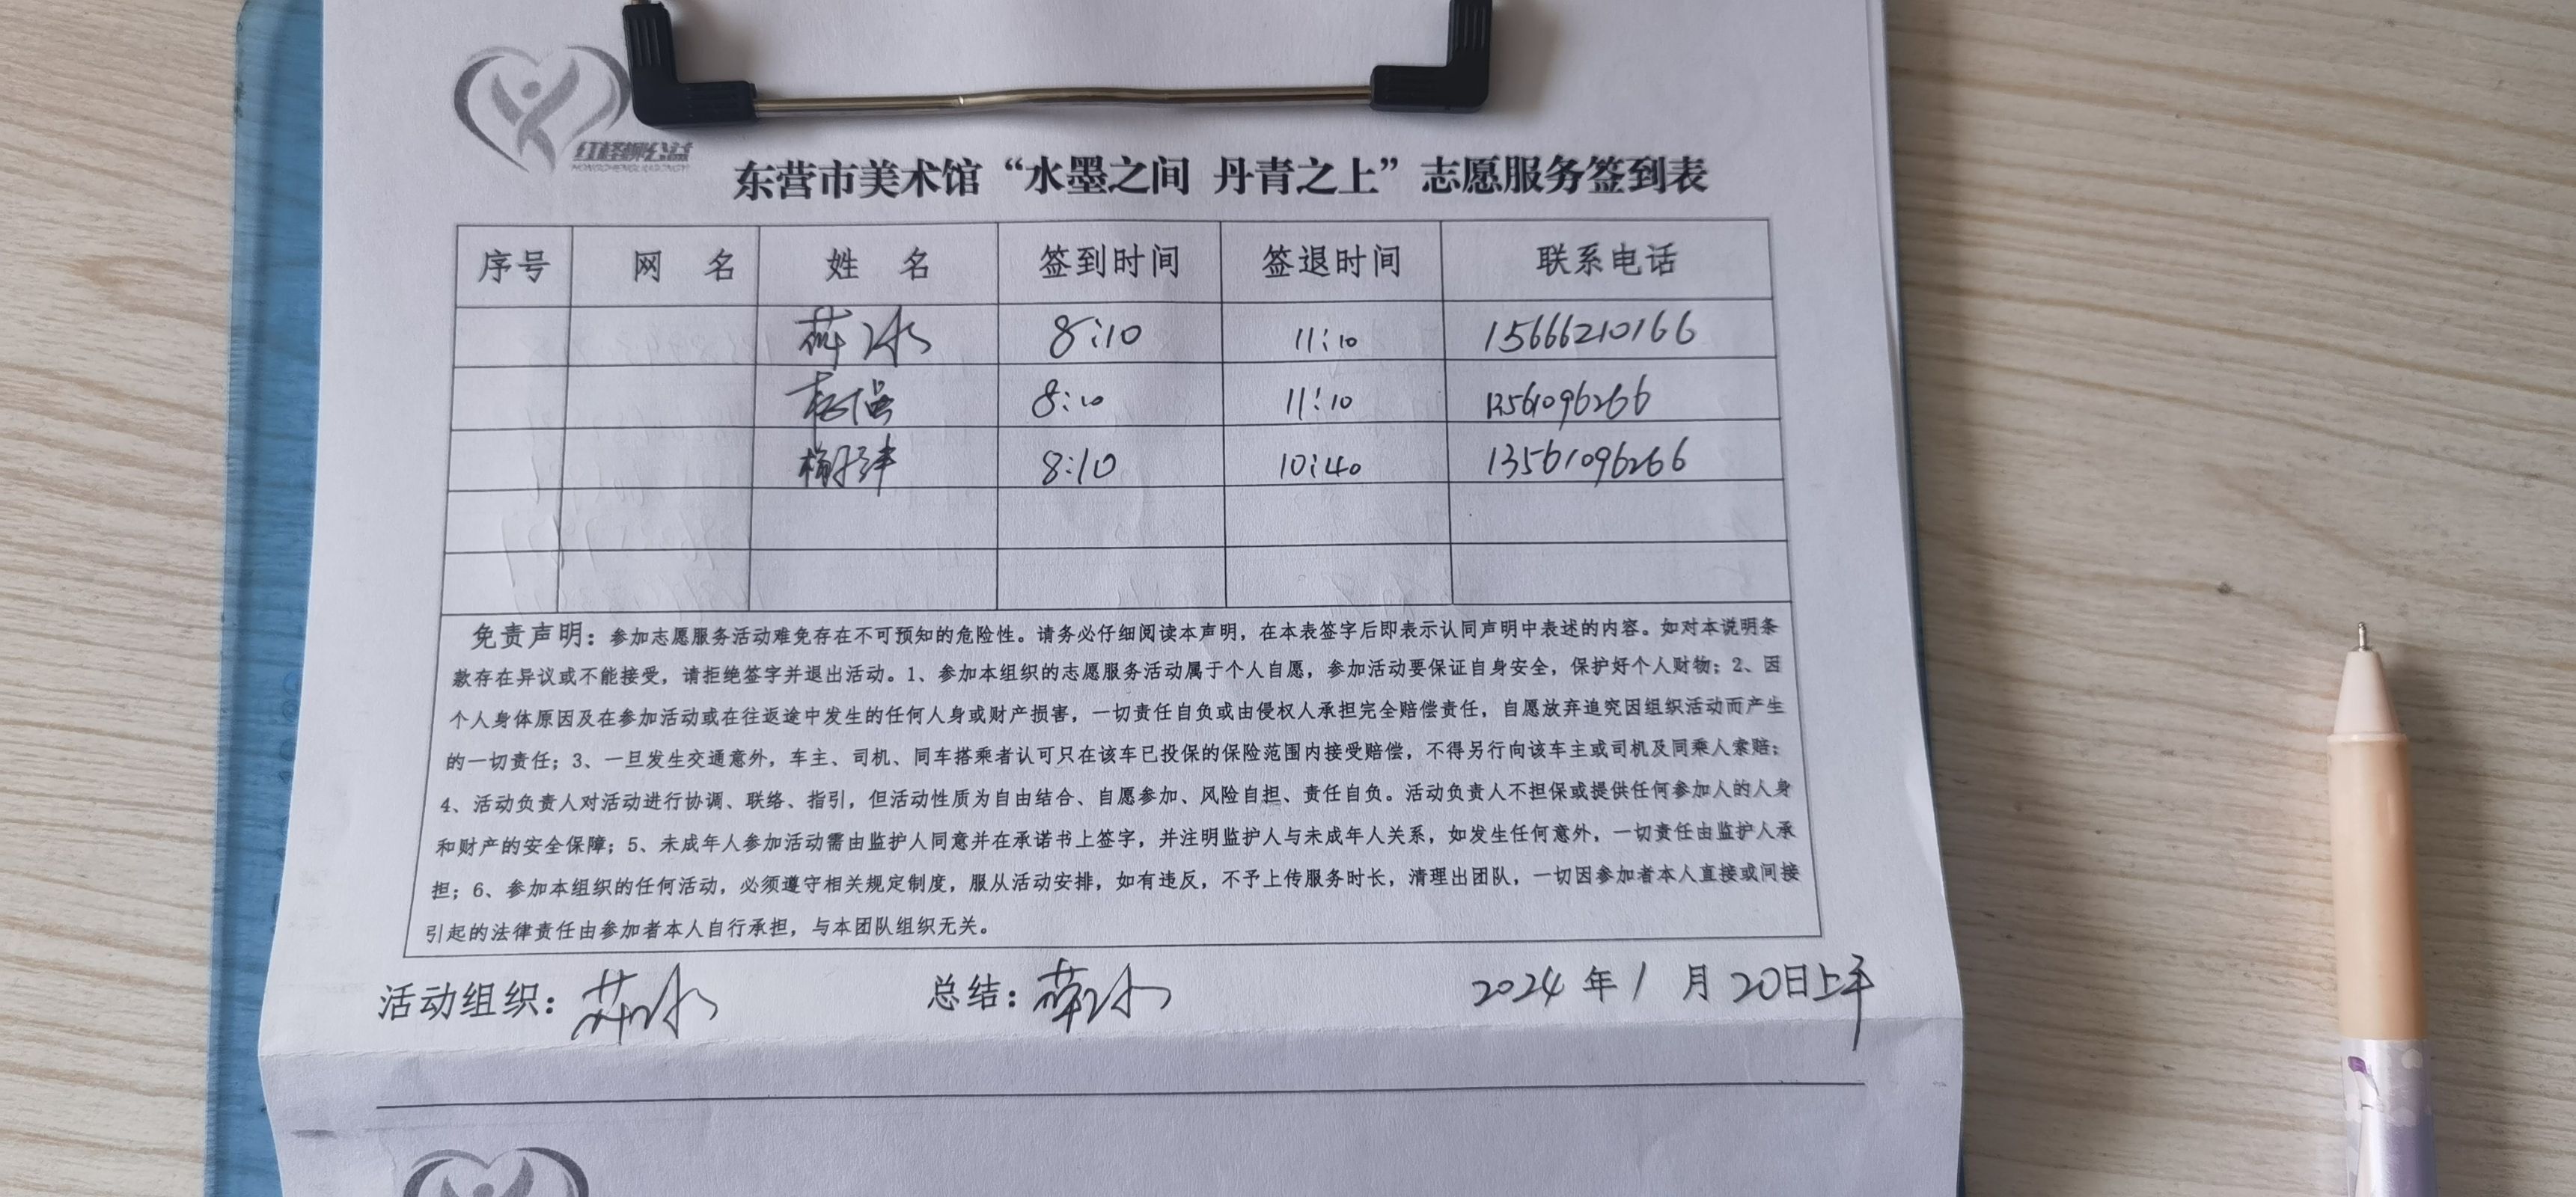 红柽柳公益
HONGCHENGLIUGONGYI
东营市美术馆“水墨之间 丹青之上”志愿服务签到表
序号 网 名 姓 名 签到时间 签退时间 联系电话
薛冰 8:10 11:10 15666210166
8:10 11:10 13561096266
8:10 10:40 13561096266
免责声明：参加志愿服务活动难免存在不可预知的危险性。请务必仔细阅读本声明，在本表签字后即表示认同声明中表述的内容。如对本说明条
款存在异议或不能接受，请拒绝签字并退出活动。1、参加本组织的志愿服务活动属于个人自愿，参加活动要保证自身安全，保护好个人财物；2、因
个人身体原因及在参加活动或在往返途中发生的任何人身或财产损害，一切责任自负或由侵权人承担完全赔偿责任，自愿放弃追究因组织活动而产生
的一切责任；3、一旦发生交通意外，车主、司机、同车搭乘者认可只在该车已投保的保险范围内接受赔偿，不得另行向该车主或司机及同乘人索赔；
4、活动负责人对活动进行协调、联络、指引，但活动性质为自由结合、自愿参加、风险自担、责任自负。活动负责人不担保或提供任何参加人的人身
和财产的安全保障；5、未成年人参加活动需由监护人同意并在承诺书上签字，并注明监护人与未成年人关系，如发生任何意外，一切责任由监护人承
担；6、参加本组织的任何活动，必须遵守相关规定制度，服从活动安排，如有违反，不予上传服务时长，清理出团队，一切因参加者本人直接或间接
引起的法律责任由参加者本人自行承担，与本团队组织无关。
活动组织：薛冰 总结：薛冰 2024 年 1 月 20日上午